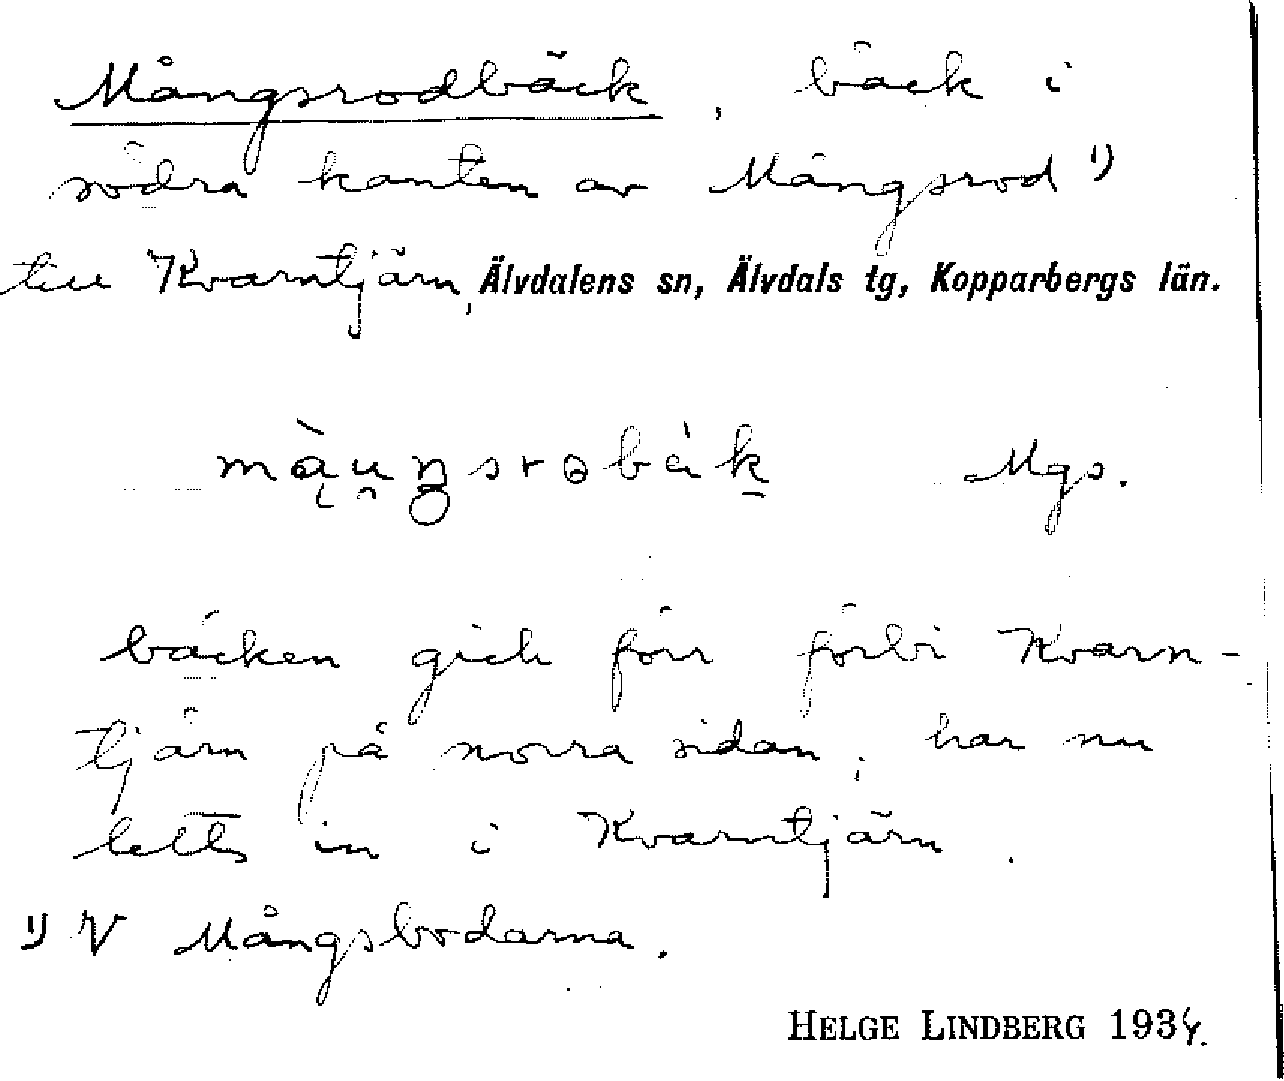 Mångsrodbäck, bäck i
södra kanten av Mångsrod 1)
till Kvarntjärn, Älvdalens sn, Älvdals tg, Kopparbergs län.
Mgs.
bäcken gick förr förbi Kvarn-
tjärn på norra sidan, har nu
letts in i Kvarntjärn.
1) V Mångsbodarna.
HELGE LINDBERG 1934.